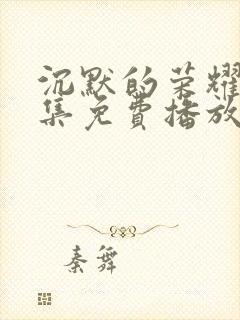 沉默的荣耀
集免费播放
秦舞